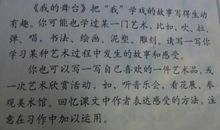 《我的舞台》把“我”学戏的故事写得生动
有趣。你可能也学过某一门艺术，比如，吹、拉、
弹、唱，书法、绘画，泥塑、雕刻，请写一写你
学习某种艺术过程中发生的故事和感受。
你也可以写一写自己喜欢的一件艺术品，或
一次艺术欣赏活动。如，听音乐会、看花展、参
观美术馆。回忆课文中作者表达感受的方法，注
意在习作中加以运用。